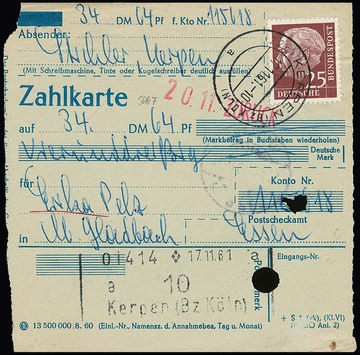 34 DM 64 Pf f. Kto Nr. 115618
Absender:
(Mit Schreibmaschine, Tinte oder Kugelschreiber deutlich ausfüllen)
DEUTSCHE BUNDESPOST 25
KERPEN (BZ KÖLN)
Zahlkarte
20.11.
auf 34. DM 64 Pf
(Markbetrag in Buchstaben wiederholen)
vierunddreißig
Deutsche Mark
für
Konto Nr.
115618
Erika Pelz
Postscheckamt
in M. Gladbach Essen
01414 17.11.61 a
Eingangs-Nr.
a 10
Kerpen (Bz Köln)
13 500 000 8. 60 (Einl.-Nr., Namensz. d. Annahmebea. Tag u. Monat)